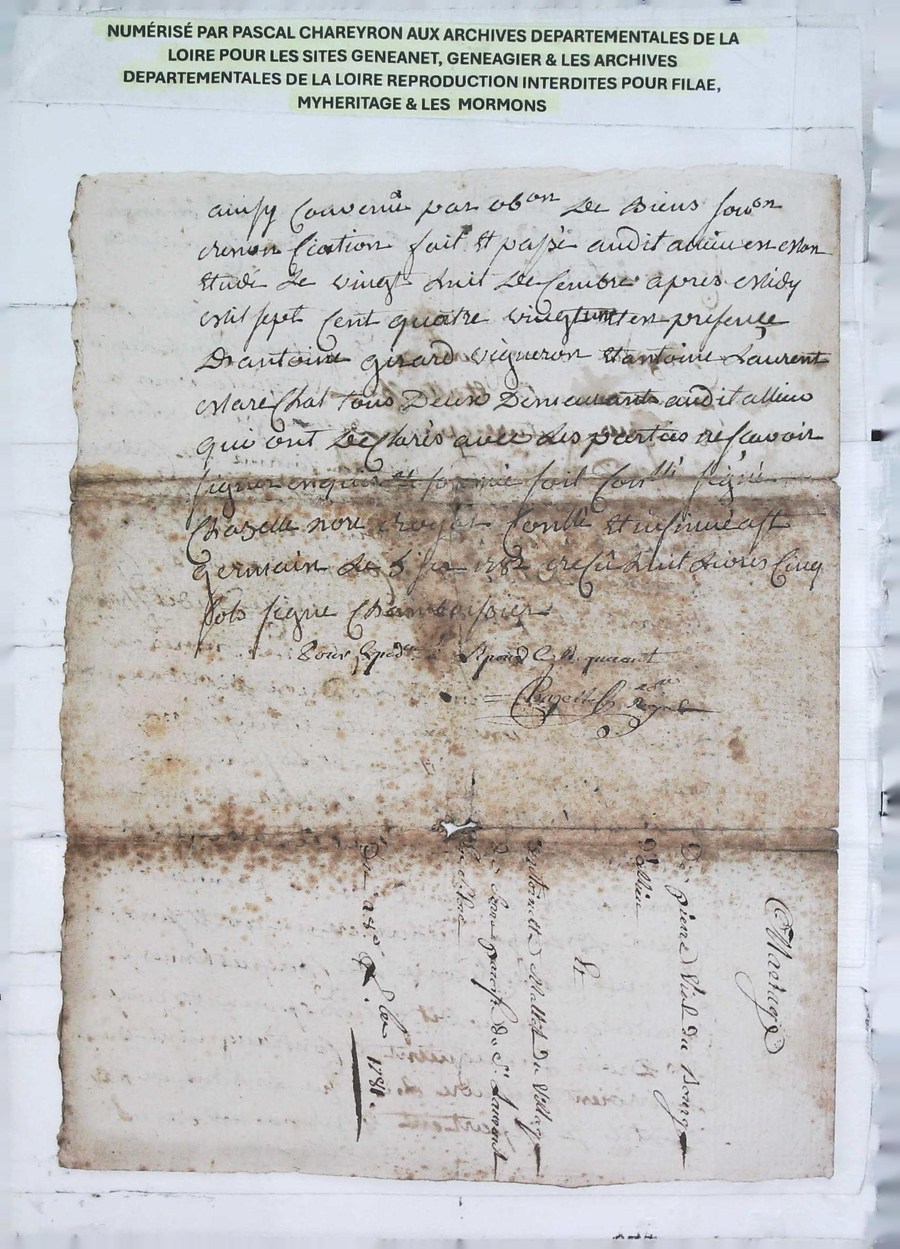 NUMÉRISÉ PAR PASCAL CHAREYRON AUX ARCHIVES DEPARTEMENTALES DE LA
LOIRE POUR LES SITES GENEANET, GENEAGIER & LES ARCHIVES
DEPARTEMENTALES DE LA LOIRE REPRODUCTION INTERDITES POUR FILAE,
MYHERITAGE & LES MORMONS
ainsy convenu par obon de Biens
fait et passé audit allieu en mon
Etude le vingt huit decembre apres midy
mil sept cent quatre vingt un en presence
D'antoine girard vigneron et antoine Laurent
marechal tous Deux Demeurants audit allieu
qui ont declarés avec les parties ne scavoir
signer enquis et soit signé
Chazelle nore royal Conllé et insinué a st
germain le 5 1782 reçu huit Livres Cinq
sols signe
Pour
Chazelle
Royal
Mariage
De pierre Vial du Bourg
D'allieu
Et
antoinette Mallet du Village
parroisse de St Laurent
Du 28e Xber 1781.